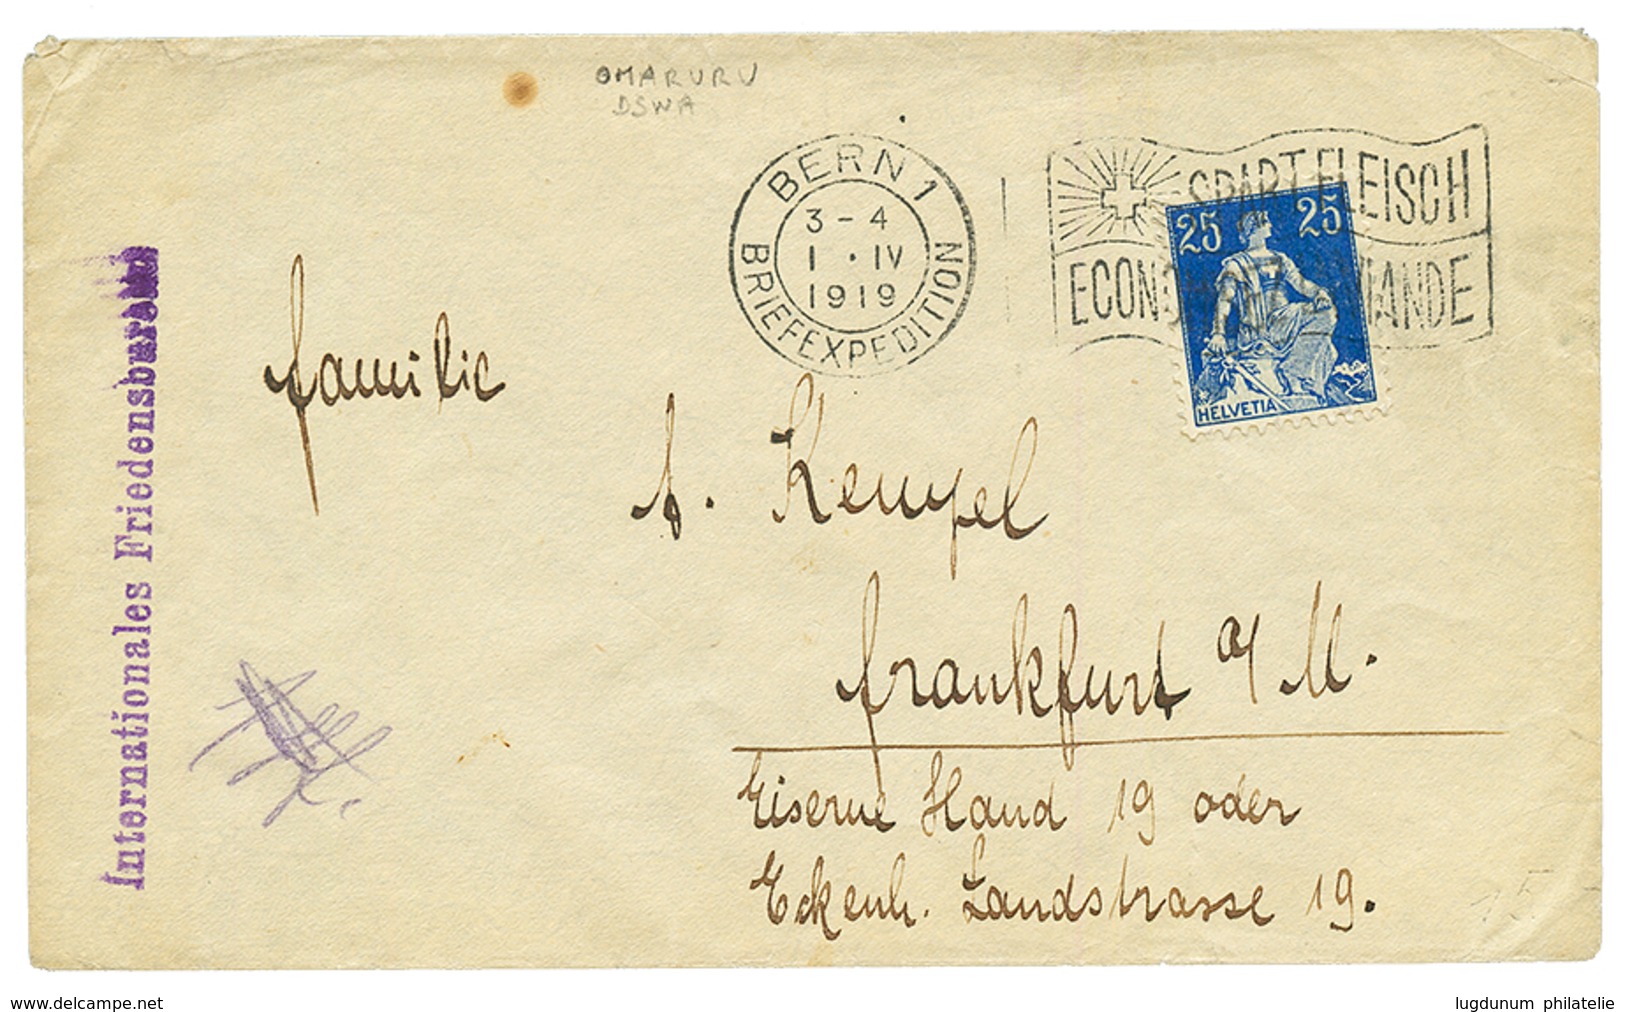 OMARURU
DSWA
BERN 1
3-4
1 · IV
1919
BRIEFEXPEDITION
SPART FLEISCH
ECONO VIANDE
25 25
HELVETIA
Internationales Friedensbureau
Familie
A. Kempel
Frankfurt a/M.
Eiserne Hand 19 oder
Eckenh. Landstrasse 19.
15
www.delcampe.net
lugdunum philatelie